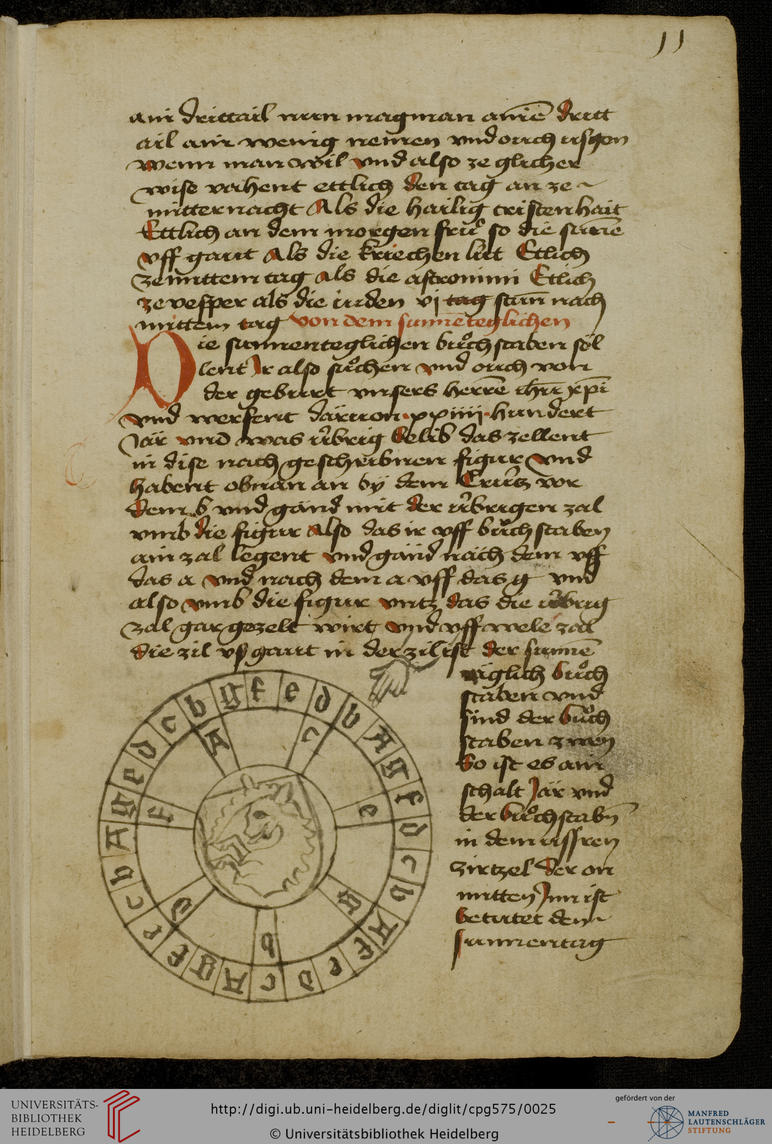 11
ain drittail nun mag man ainē dritt
ail ain wenig nemen vnd ouch
wenn man wil vnd also ze glicher
wise vahent ettlich den tag an ze
mitternacht Als die hailig cristenhait
Ettlich an dem morgen frü so die sunē
vff gaut Als die kriechen lüt Etlich
ze mittem tag Als die astronimi Etlich
ze vesper als die iuden vj tag stun nach
mittem tag von dem sunnēteglichen
Die sunnenteglichen buͦchstaben söl
lent Ir also suͦchen vnd ouch von
der geburt vnsers herrē ihu xpi
vnd werfent däruon ·xxiiii· hundert
Jär vnd was vͤbrig belib das zellent
in dise nach geschribnen figur vnd
habent obnan an by dem Crütz vor
dem b vnd gänd mit der vͤbrigen zal
vmb die figur Also das ir vff buͦchstaben
ain zal legent vnd gänd nach dem vff
das a vnd nach dem a vff das g vnd
also vmb die figur vntz das die vͤbrig
zal gar gezelt wirt vnd vff wele zal
die zil vß gaut in der zil ist der sunnē
tiglich buͦch
staben vnd
sind der buͦch
staben zwen
So ist es ain
schalt Jär vnd
der buͦchstabn
in dem vssren
zirtzel der on
mitten Inn ist
betütet den
sunnentag
b A g f d c b A f e d c A g f e c b A g e d c b g f e d
A c e g b d f
UNIVERSITÄTS-
BIBLIOTHEK
HEIDELBERG
http://digi.ub.uni-heidelberg.de/diglit/cpg575/0025
© Universitätsbibliothek Heidelberg
gefördert von der
MANFRED
LAUTENSCHLÄGER
STIFTUNG